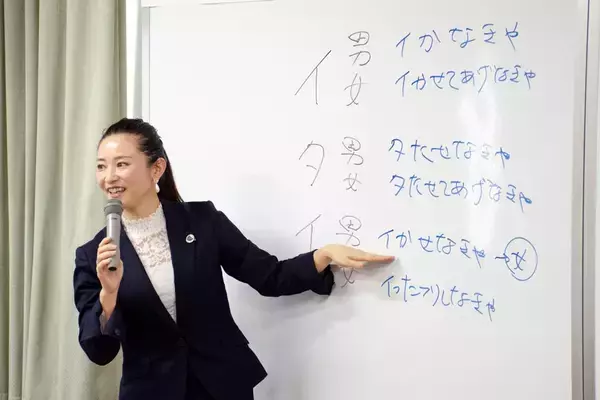 イ 男 イかなきゃ
女 イかせてあげなきゃ
タ 男 タたせなきゃ
女 タたせてあげなきゃ
イ 男 イかせなきゃ→女
女 イったフリしなきゃ